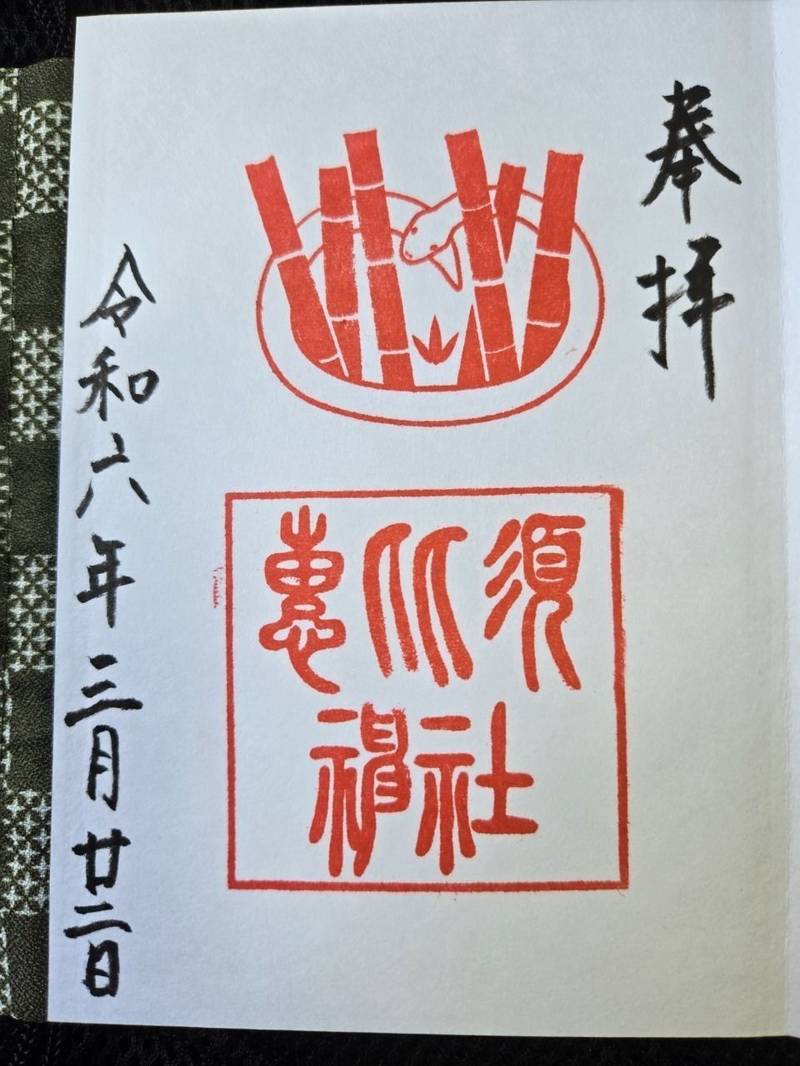 奉拝
惠比須
神社
令和六年三月廿二日